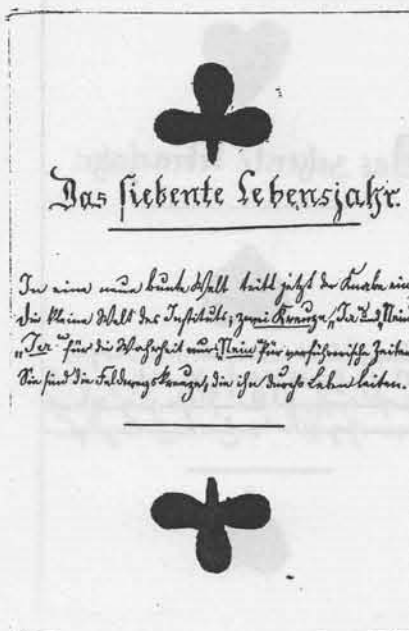 Das siebente Lebensjahr.
In eine neue bunte Welt tritt jetzt der Knabe ein
Die kleine Welt des Instituts; zwei Kreuze, „Ja“ und „Nein
„Ja“ für die Wahrheit nur; „Nein“ für verführerische Zeiten
Sie sind die Feldwegskreuze, die ihn durchs Leben leiten.